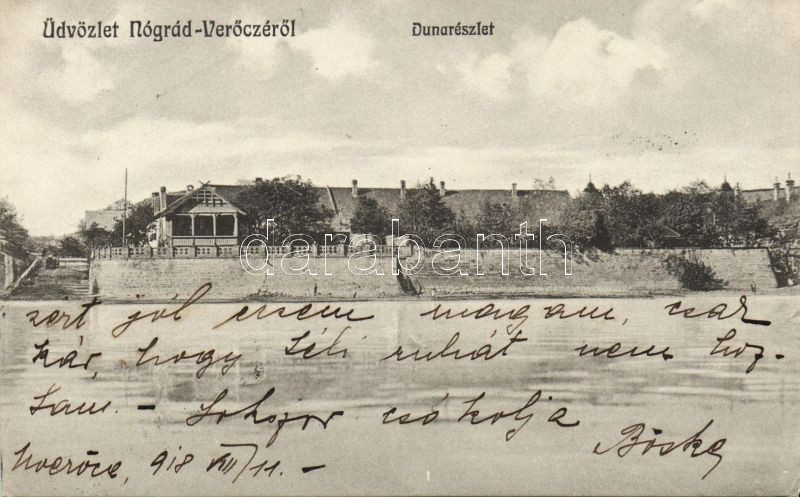 Üdvözlet Nógrád-Verőczéről
Dunarészlet
darabanth
jól érzem magam, csak
kár, hogy téli ruhát nem hoz-
tam. - Sokszor csókolja
Böske
Nverőce, 918 VII/11. -